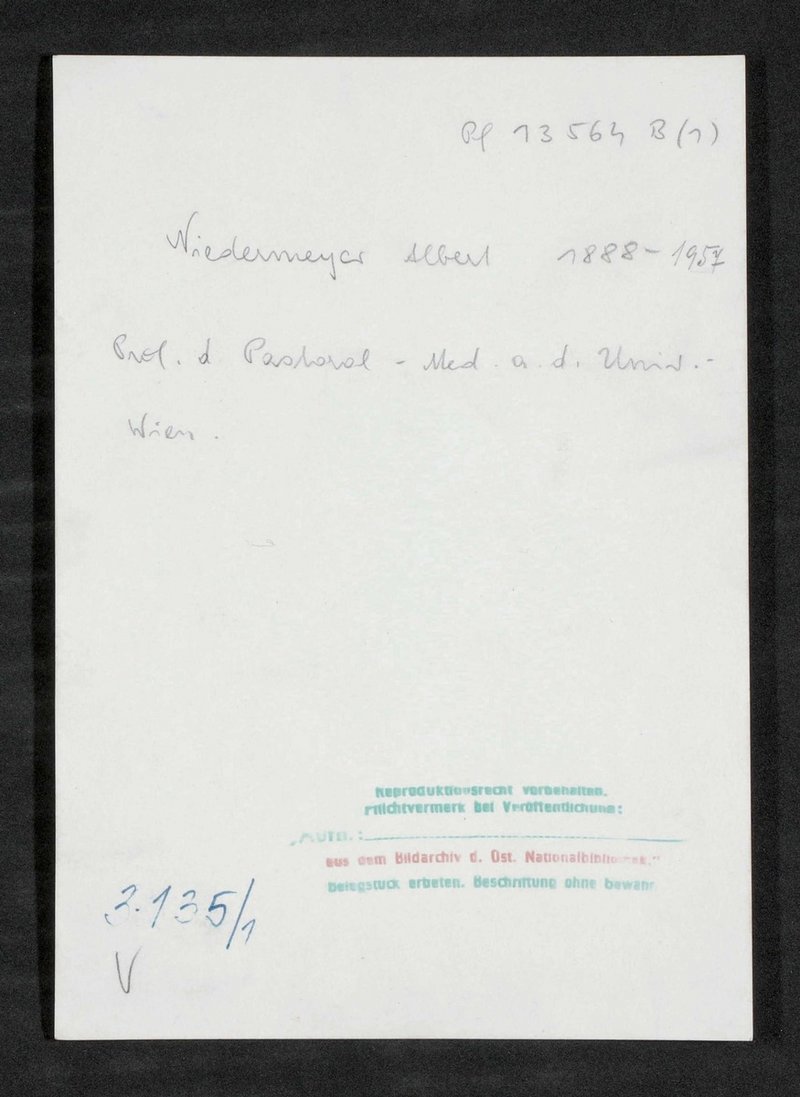 Pf 13 564 B (1)
Niedermeyer Albert 1888 - 1957
Prof. d Pastoral - Med. a. d. Univ. -
Wien.
Reproduktionsrecht vorbehalten.
Pflichtvermerk bei Veröffentlichung:
„Aufn.:
aus dem Bildarchiv d. Öst. Nationalbibliothek."
Belegstück erbeten. Beschriftung ohne Gewähr.
3.135/1
V